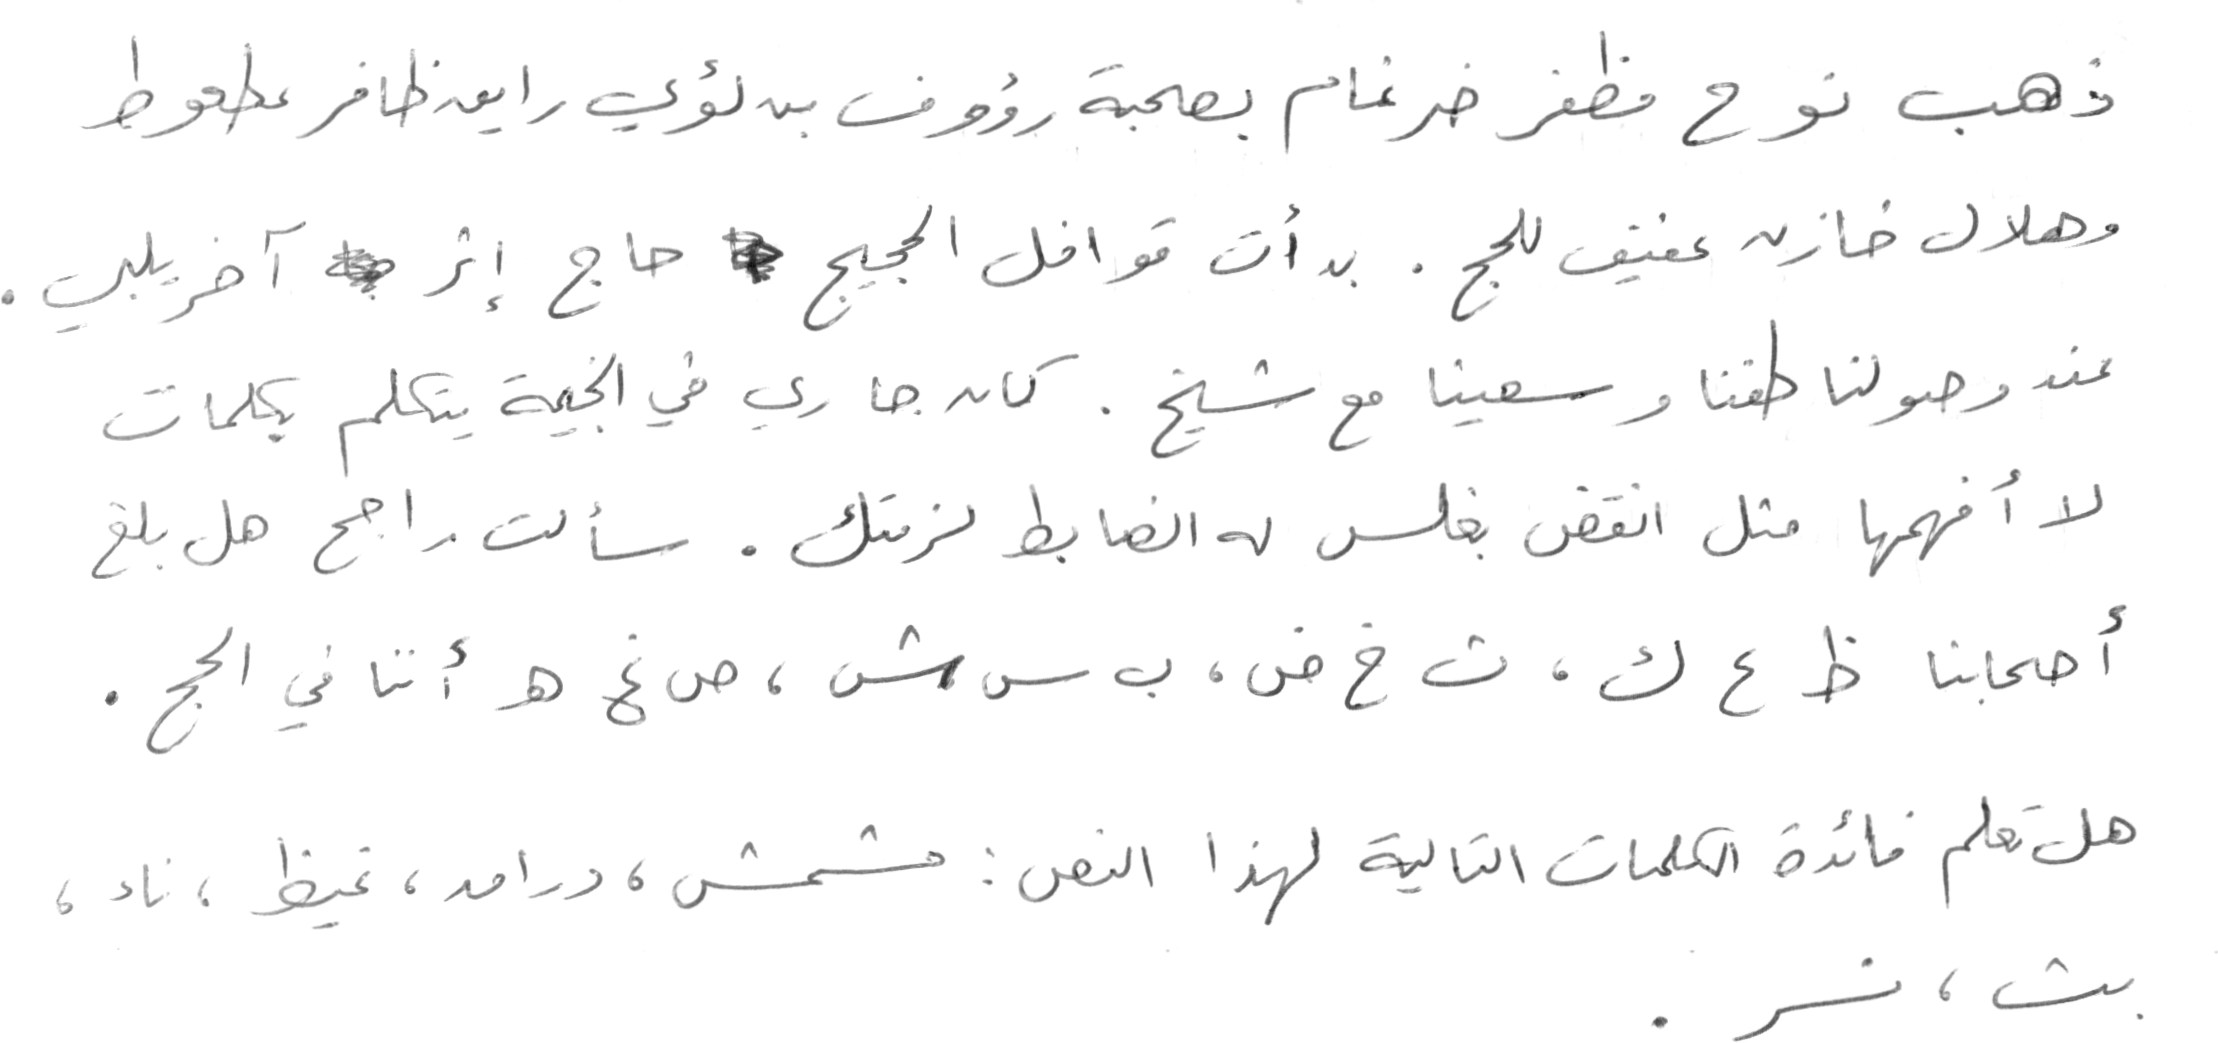 ذهب نوح مظفر ضرغام بصحبة رؤوف بن لؤي رايق ظافر عطعوط
وهلال خازن عفيف للحج. بدأت قوافل الحجيج حاج إثر آخر يلبي.
عند وصولنا طفنا وسعينا مع شيخ. كان جاري في الخيمة يتكلم بكلمات
لا أفهمها مثل انقض بغلس له الضابط لزمتك. سألت راجح هل بلغ
أصحابنا ظ ع ك، ث خ ض، ب س ش، ص غ هـ أننا في الحج.
هل تعلم فائدة الكلمات التالية لهذا النص: مشمش، درامد، غيظ، ناد،
بث، نسر.